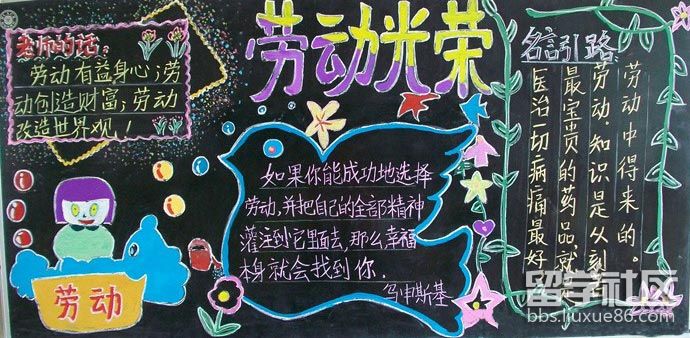 劳动光荣
老师的话：
劳动有益身心；劳
动创造财富；劳动
改造世界观！
劳动
如果你能成功地选择
劳动，并把自己的全部精神
灌注到它里面去，那么幸福
本身就会找到你．
乌申斯基
名言引路
医治一切病痛最好
最宝贵的药品，就是
劳动。知识是从刻苦
劳动中得来的。
留学社区
bbs.liuxue86.com